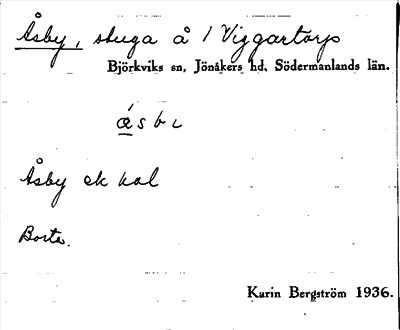 Åsby, stuga å 1 Viggartorp
Björkviks sn, Jönåkers hd, Södermanlands län.
ás b ɩ
Åsby ek kal
Borta.
Karin Bergström 1936.